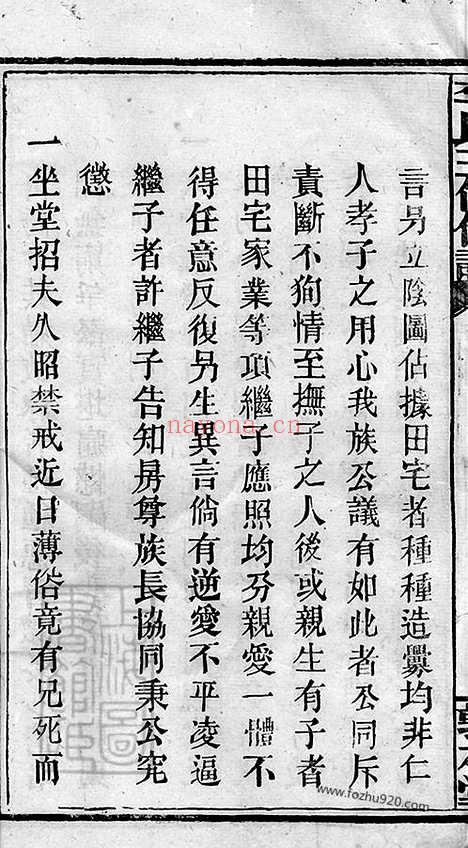 言另立陰圖佔據田宅者種種造釁均非仁
人孝子之用心我族公議有如此者公同斥
責斷不狥情至撫子之人後或親生有子者
田宅家業等項繼子應照均分親愛一體不
得任意反復另生異言倘有逆愛不平凌逼
繼子者許繼子告知房尊族長協同秉公究
懲
一坐堂招夫久昭禁戒近日薄俗竟有兄死而
naxona.cn
www.fozhu920.com